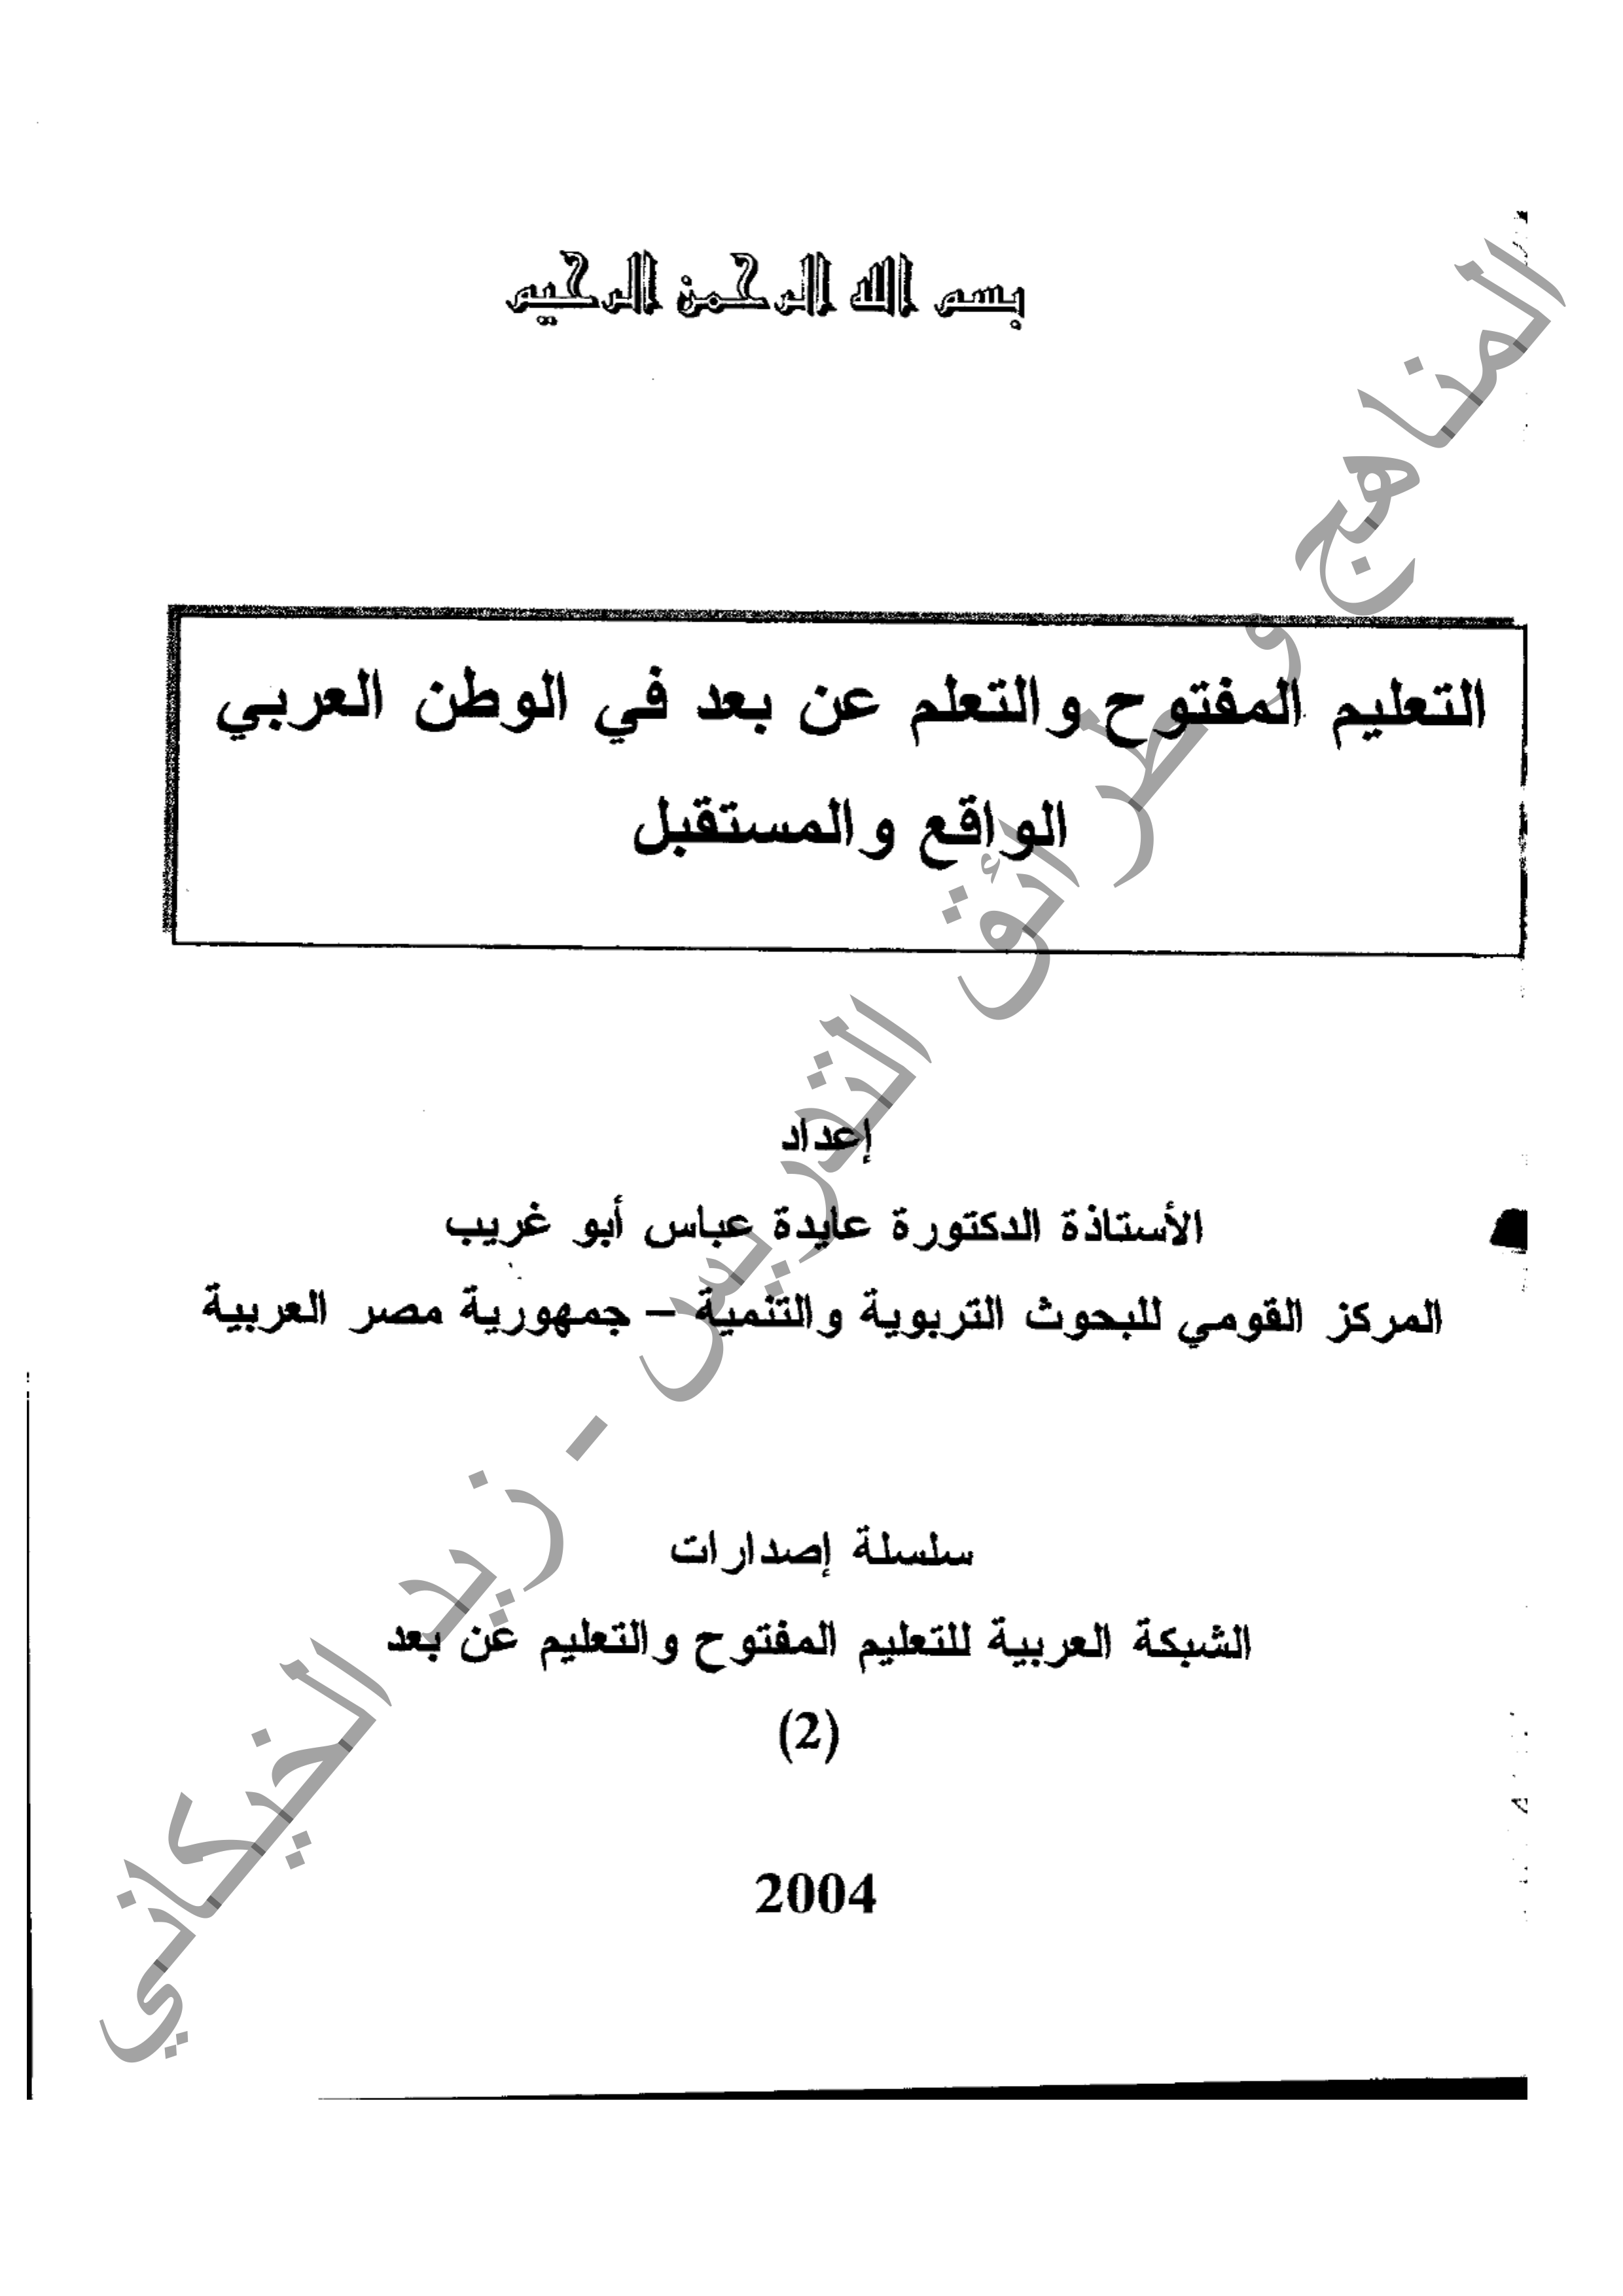 بسم الله الرحمن الرحيم
التعليم المفتوح والتعلم عن بعد في الوطن العربي
الواقع والمستقبل
إعداد
الأستاذة الدكتورة عايدة عباس أبو غريب
المركز القومي للبحوث التربوية والتنمية – جمهورية مصر العربية
سلسلة إصدارات
الشبكة العربية للتعليم المفتوح والتعليم عن بعد
(2)
2004
المناهج وطرائق التدريس - زيد الخيكاني